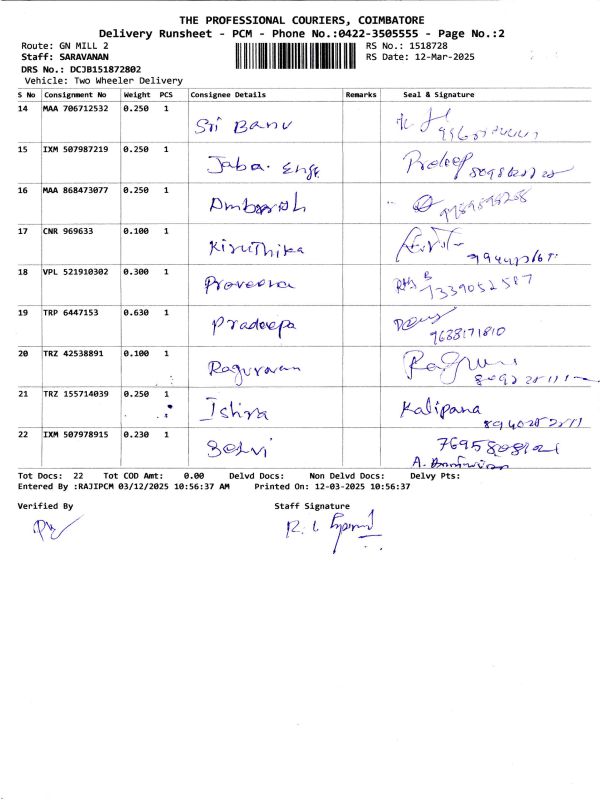 THE PROFESSIONAL COURIERS, COIMBATORE
Delivery Runsheet - PCM - Phone No.:0422-3505555 - Page No.:2
Route: GN MILL 2
RS No.: 1518728
Staff: SARAVANAN
RS Date: 12-Mar-2025
DRS No.: DCJB151872802
Vehicle: Two Wheeler Delivery
S No Consignment No Weight PCS Consignee Details Remarks Seal & Signature
14 MAA 706712532 0.250 1
Sri Banu
15 IXM 507987219 0.250 1
Jaba. Enge
Pradeep
16 MAA 868473077 0.250 1
17 CNR 969633 0.100 1
Kiruthika
18 VPL 521910302 0.300 1
Praveena
7339052587
19 TRP 6447153 0.630 1
Pradeepa
9688171810
20 TRZ 42538891 0.100 1
Raguraman
21 TRZ 155714039 0.250 1
Ishra Kalipana
22 IXM 507978915 0.230 1
Selvi
Tot Docs: 22 Tot COD Amt: 0.00 Delvd Docs: Non Delvd Docs: Delvy Pts:
Entered By :RAJIPCM 03/12/2025 10:56:37 AM Printed On: 12-03-2025 10:56:37
Verified By Staff Signature